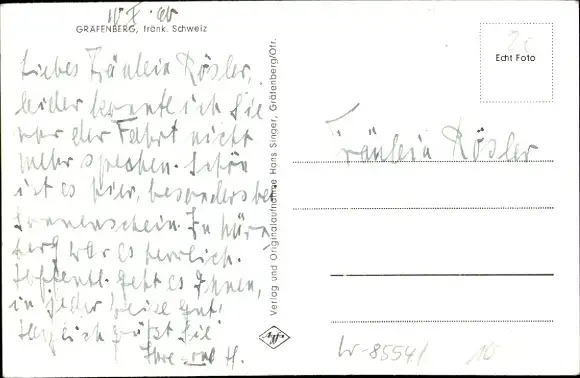 GRÄFENBERG, fränk. Schweiz
Liebes Fräulein Rösler,
leider konnte ich Sie
vor der Fahrt nicht
mehr sprechen. Schön
ist es hier, besonders bei
Sonnenschein. In Nürn-
berg war es herrlich.
Hoffentl. geht es Ihnen,
in jeder Weise gut.
Herzlich grüßt Sie
Ihre H.
Verlag und Originalaufnahme Hans Singer, Gräfenberg/Ofr.
Agfa
Echt Foto
Fräulein Rösler
10